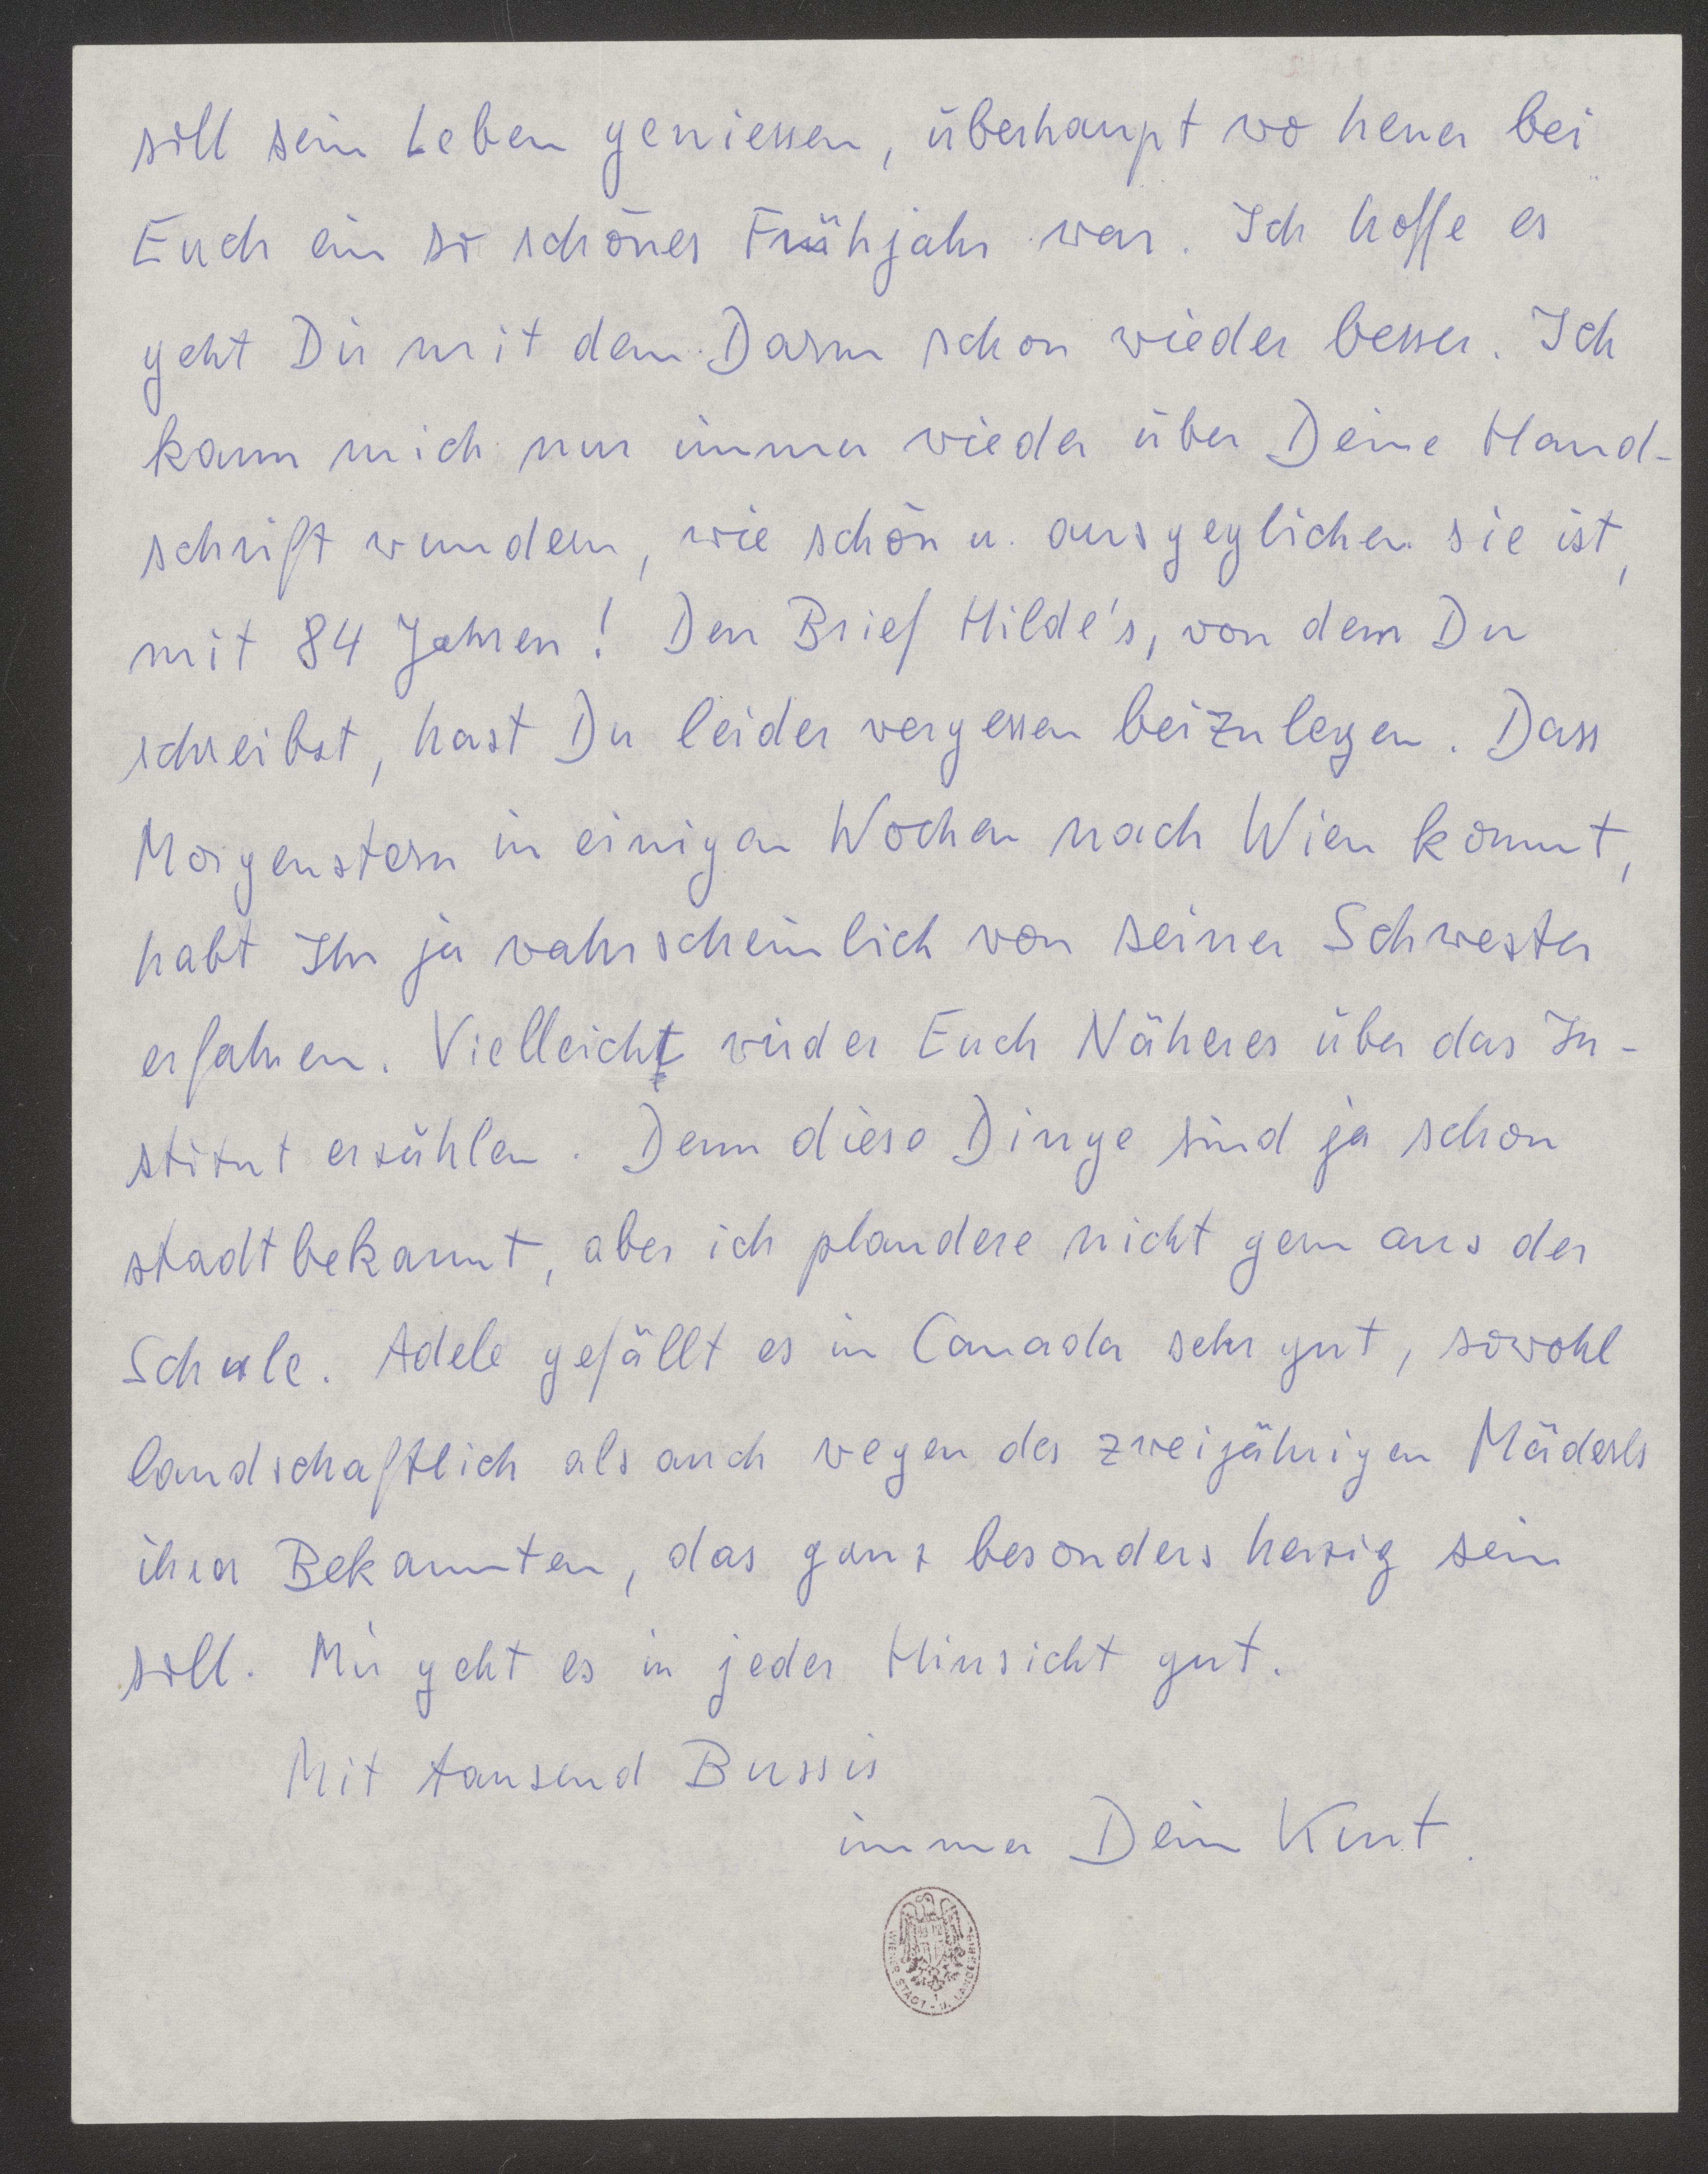 soll sein Leben geniessen, überhaupt wo heuer bei
Euch ein so schönes Frühjahr war. Ich hoffe es
geht Dir mit dem Darm schon wieder besser. Ich
kann mich nur immer wieder über Deine Hand-
schrift wundern, wie schön u. ausgeglichen sie ist,
mit 84 Jahren! Den Brief Hilde's, von dem Du
schreibst, hast Du leider vergessen beizulegen. Dass
Morgenstern in einigen Wochen nach Wien kommt,
habt Ihr ja wahrscheinlich von seiner Schwester
erfahren. Vielleicht wird er Euch Näheres über das In-
stitut erzählen. Denn diese Dinge sind ja schon
stadtbekannt, aber ich plaudere nicht gern aus der
Schule. Adele gefällt es in Canada sehr gut, sowohl
landschaftlich als auch wegen des zweijährigen Mäderls
ihrer Bekannten, das ganz besonders herzig sein
soll. Mir geht es in jeder Hinsicht gut.
Mit tausend Bussis
immer Dein Kurt.
WIENER STADT- U. LANDESBIBL.